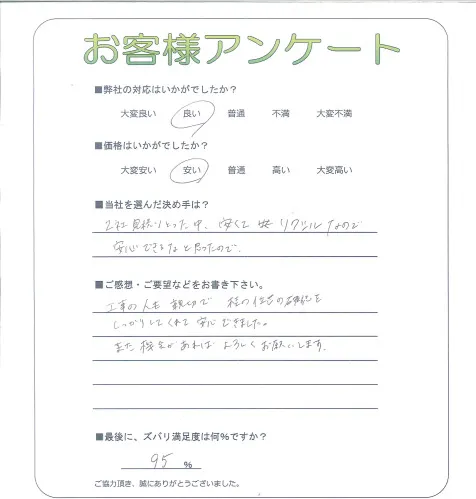 お客様アンケート
■弊社の対応はいかがでしたか？
大変良い 良い 普通 不満 大変不満
■価格はいかがでしたか？
大変安い 安い 普通 高い 大変高い
■当社を選んだ決め手は？
2社見積りとった中、安くて リクシルなので
安心できるなと思ったので。
■ご感想・ご要望などをお書き下さい。
工事の人も親切で 他の仕告の
しっかりしてくれて安心できました。
また機会があれば よろしくお願いします。
■最後に、ズバリ満足度は何%ですか？
95 %
ご協力頂き、誠にありがとうございました。